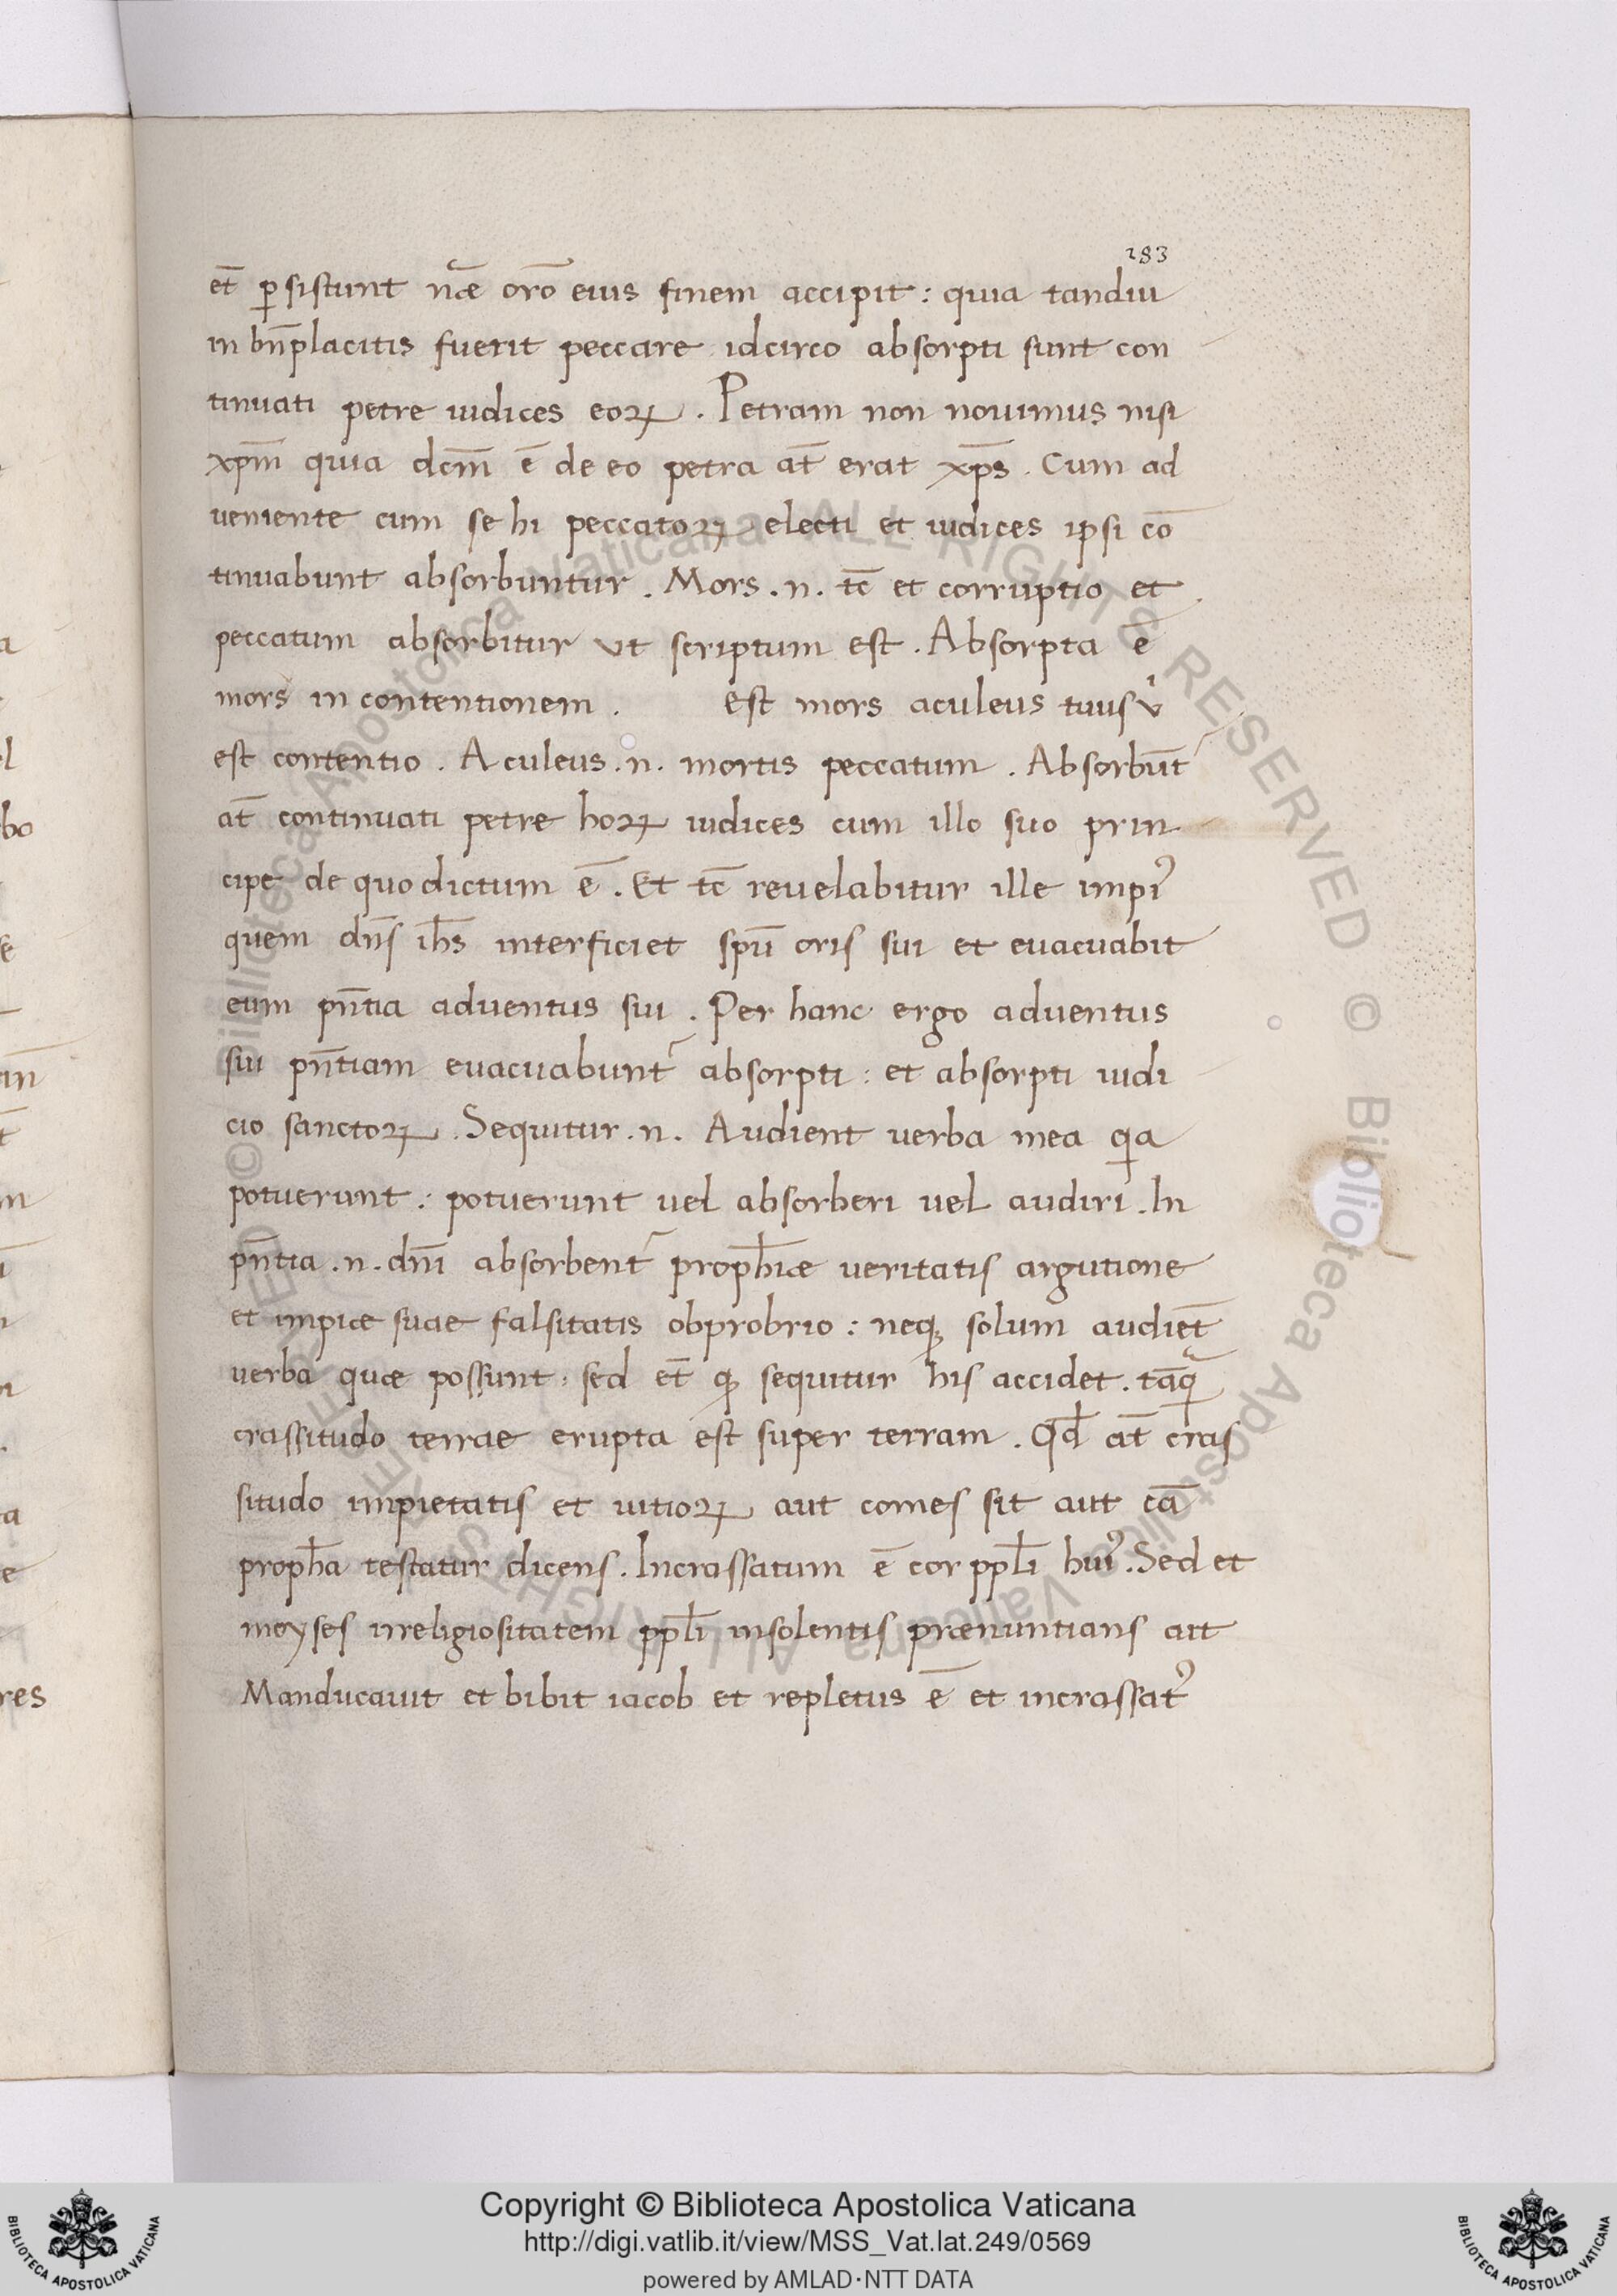 283
et̄ ꝑsistunt nr̄ae oro̅ eius finem accipit : quia tandiu
in bn̄placitis fuerit peccare idcirco absorpti sunt con
tinuati petre iudices eoꝝ . Petram non nouimus nisi
xp̄m quia dcm̄ ē de eo petra at̄ erat xp̄s . Cum ad
ueniente cum se hi peccatoꝝ electi et iudices ipsi cō
tinuabunt absorbuntur . Mors . n . tc̄ et corruptio et
peccatum absorbitur vt scriptum est . Absorpta ē
mors in contentionem . est mors aculeus tuus v̍
est contentio . Aculeus . n . mortis peccatum . Absorbūt᷑
at̄ continuati petre hoꝝ iudices cum illo suo prin
cipe de quo dictum ē . Et tc̄ reuelabitur ille impiꝰ
quem dn̄s ih̄s interficiet spū oris sui et euacuabit
eum pn̄tia aduentus sui . Per hanc ergo aduentus
sui pn̄tiam euacuabunt᷑ absorpti : et absorpti iudi
cio sanctoꝝ . Sequitur . n . Audient uerba mea qia
potuerunt : potuerunt uel absorberi uel audiri . In
pn̄tia . n . dn̄i absorbent᷑ proph̄iae ueritatis argutione
et impiae suae falsitatis obprobrio : neqꝫ solum audiēt
uerba quae possunt : sed et̄ qꝫ sequitur his accidet . tāqᷓ
crassitudo terrae erupta est super terram . Qd̄ at̄ cras
situdo impietatis et uitioꝝ aut comes sit aut cā
proph̄a testatur dicens . Incrassatum ē cor ppl̄i huiꝰ . Sed et
moyses irreligiositatem ppl̄i insolentis praenuntians ait
Manducauit et bibit iacob et repletus ē et incrassatꝰ
Copyright © Biblioteca Apostolica Vaticana
http://digi.vatlib.it/view/MSS_Vat.lat.249/0569
powered by AMLAD·NTT DATA